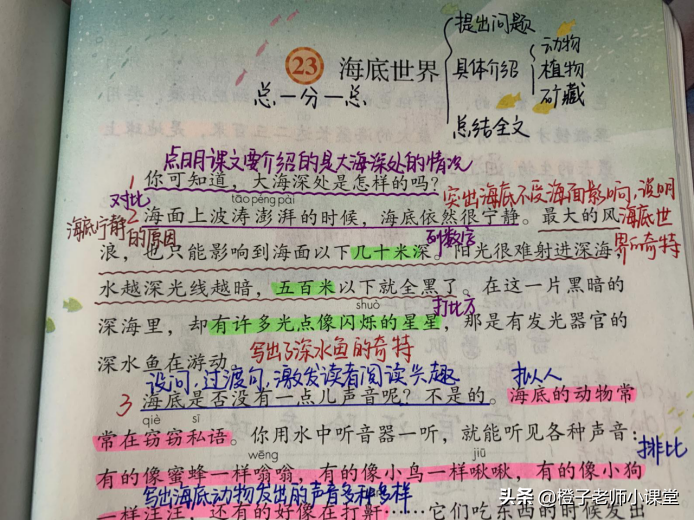 23 海底世界
提出问题
具体介绍
总结全文
动物
植物
矿藏
总一分一总
点明课文要介绍的是大海深处的情况
1 你可知道，大海深处是怎样的吗？
对比
突出海底不受海面影响，说明海底世界的奇特
tāo péng pài
2 海面上波涛澎湃的时候，海底依然很宁静。最大的风
海底宁静的原因
列数字
浪，也只能影响到海面以下几十米深。阳光很难射进深海，
水越深光线越暗，五百米以下就全黑了。在这一片黑暗的
shuò
打比方
深海里，却有许多光点像闪烁的星星，那是有发光器官的
深水鱼在游动。
写出了深水鱼的奇特
设问，过渡句，激发读者阅读兴趣
拟人
3 海底是否没有一点儿声音呢？不是的。海底的动物常
qiè sī
常在窃窃私语。你用水中听音器一听，就能听见各种声音：
排比
wēng jiū
有的像蜜蜂一样嗡嗡，有的像小鸟一样啾啾，有的像小狗
写出海底动物发出的声音多种多样
一样汪汪，还有的好像在打鼾……它们吃东西的时候发出
头条 @橙子老师小课堂